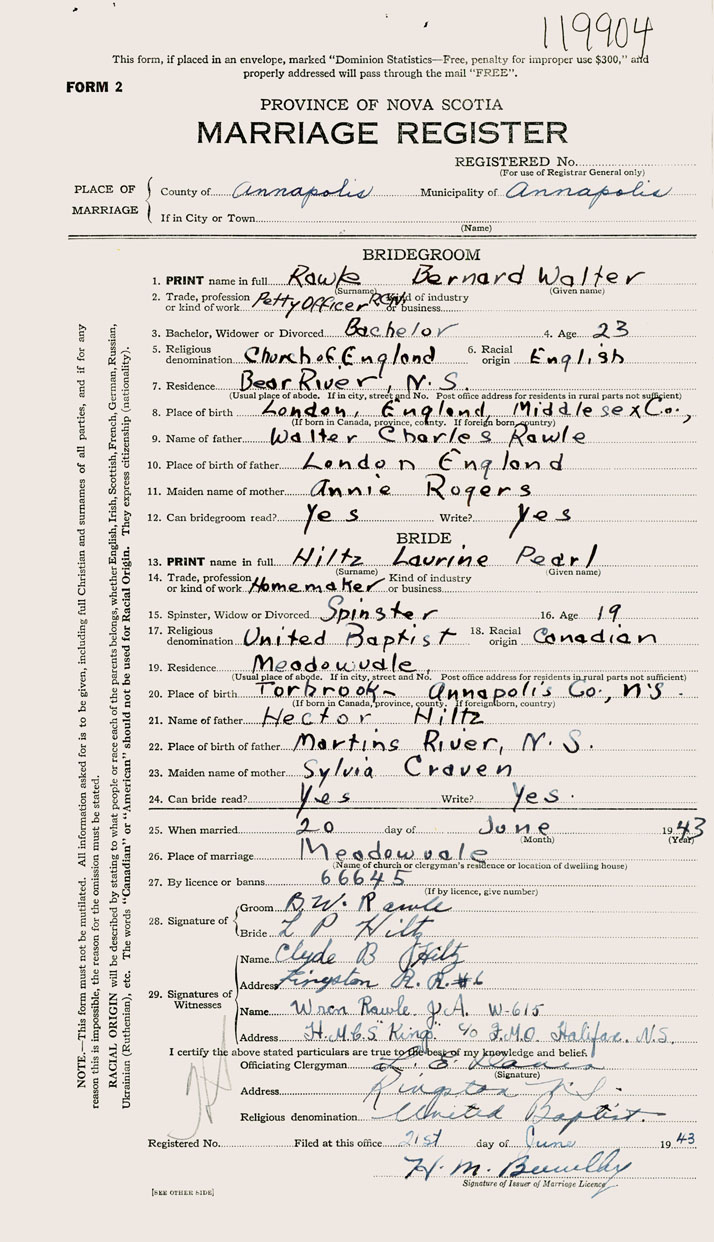 119904
This form, if placed in an envelope, marked "Dominion Statistics—Free, penalty for improper use $300," and
properly addressed will pass through the mail "FREE".
FORM 2
PROVINCE OF NOVA SCOTIA
MARRIAGE REGISTER
REGISTERED No.
(For use of Registrar General only)
PLACE OF MARRIAGE
County of Annapolis Municipality of Annapolis
If in City or Town
(Name)
BRIDEGROOM
1. PRINT name in full Rawle Bernard Walter
(Surname) (Given name)
2. Trade, profession or kind of work Petty Officer RCN Kind of industry or business
3. Bachelor, Widower or Divorced Bachelor 4. Age 23
5. Religious denomination Church of England 6. Racial origin English
7. Residence Bear River, N.S.
(Usual place of abode. If in city, street and No. Post office address for residents in rural parts not sufficient)
8. Place of birth London, England, Middlesex Co.,
(If born in Canada, province, county. If foreign born, country)
9. Name of father Walter Charles Rawle
10. Place of birth of father London England
11. Maiden name of mother Annie Rogers
12. Can bridegroom read? Yes Write? Yes
BRIDE
13. PRINT name in full Hiltz Laurine Pearl
(Surname) (Given name)
14. Trade, profession or kind of work Homemaker Kind of industry or business
15. Spinster, Widow or Divorced Spinster 16. Age 19
17. Religious denomination United Baptist 18. Racial origin Canadian
19. Residence Meadowvale,
(Usual place of abode. If in city, street and No. Post office address for residents in rural parts not sufficient)
20. Place of birth Torbrook - Annapolis Co., N.S.
(If born in Canada, province, county. If foreign born, country)
21. Name of father Hector Hiltz
22. Place of birth of father Martins River, N.S.
23. Maiden name of mother Sylvia Craven
24. Can bride read? Yes Write? Yes.
25. When married 20 day of June 1943
(Month) (Year)
26. Place of marriage Meadowvale
(Name of church or clergyman's residence or location of dwelling house)
27. By licence or banns 66645
(If by licence, give number)
28. Signature of
Groom B.W. Rawle
Bride L P Hiltz
29. Signatures of Witnesses
Name Clyde B Hiltz
Address Kingston R.R. #6
Name Wren Rawle J.A. W-615
Address H.M.C.S "Kings" c/o F.M.O. Halifax, N.S.
I certify the above stated particulars are true to the best of my knowledge and belief.
Officiating Clergyman L. E.
(Signature)
Address Kingston N.S.
Religious denomination United Baptist.
Registered No. Filed at this office 21st day of June 1943
H. M.
Signature of Issuer of Marriage Licence
[SEE OTHER SIDE]
NOTE.—This form must not be mutilated. All information asked for is to be given, including full Christian and surnames of all parties, and if for any
reason this is impossible, the reason for the omission must be stated.
RACIAL ORIGIN will be described by stating to what people or race each of the parents belongs, whether English, Irish, Scottish, French, German, Russian,
Ukrainian (Ruthenian), etc. The words "Canadian" or "American" should not be used for Racial Origin. They express citizenship (nationality).